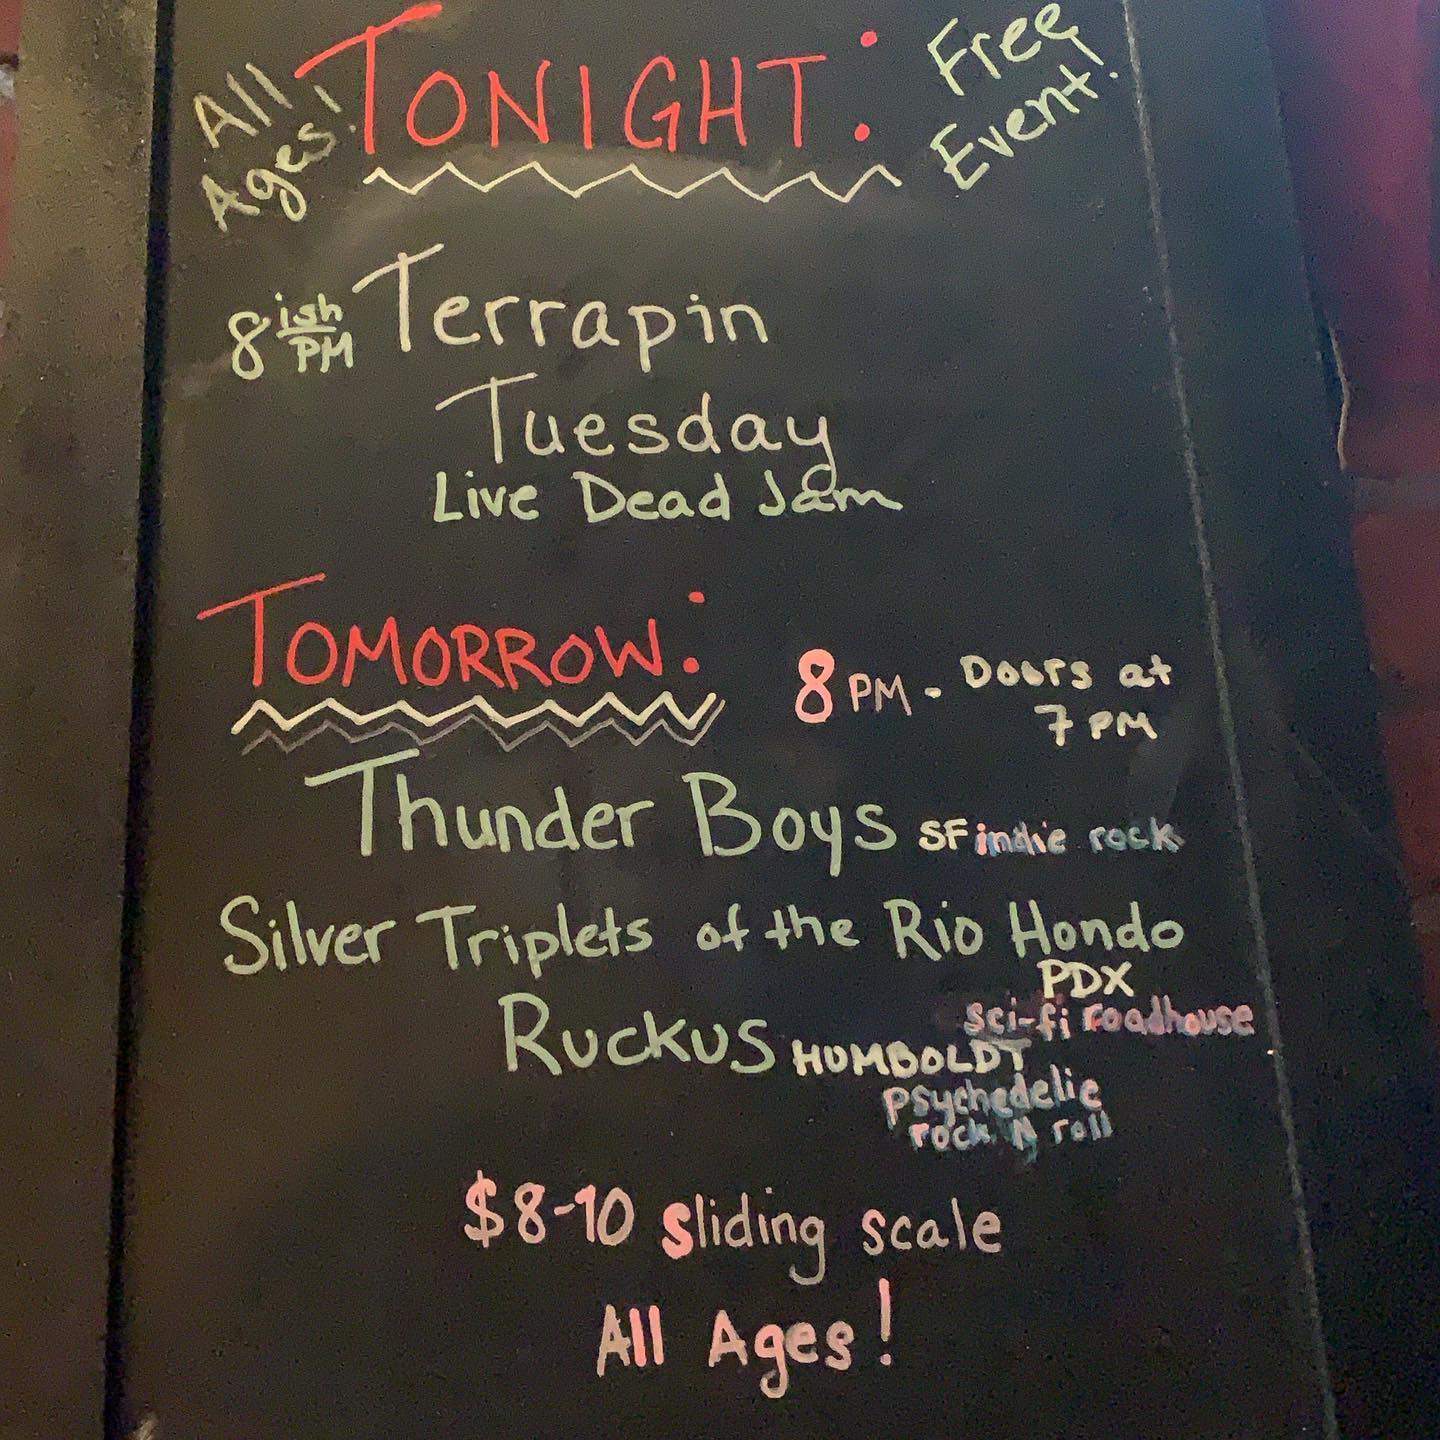 All Ages!
TONIGHT:
Free Event!
8ish PM
Terrapin
Tuesday
Live Dead Jam
TOMORROW:
8 PM - Doors at
7 PM
Thunder Boys SF indie rock
Silver Triplets of the Rio Hondo
PDX
sci-fi roadhouse
RUCKUS HUMBOLDT
psychedelic
rock N roll
$8-10 sliding scale
All Ages!